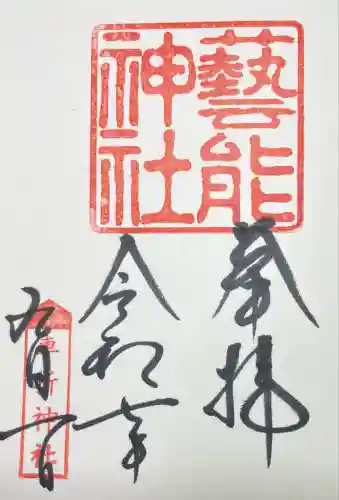 藝能
神社
奉拝
令和 年
月一日
車折神社